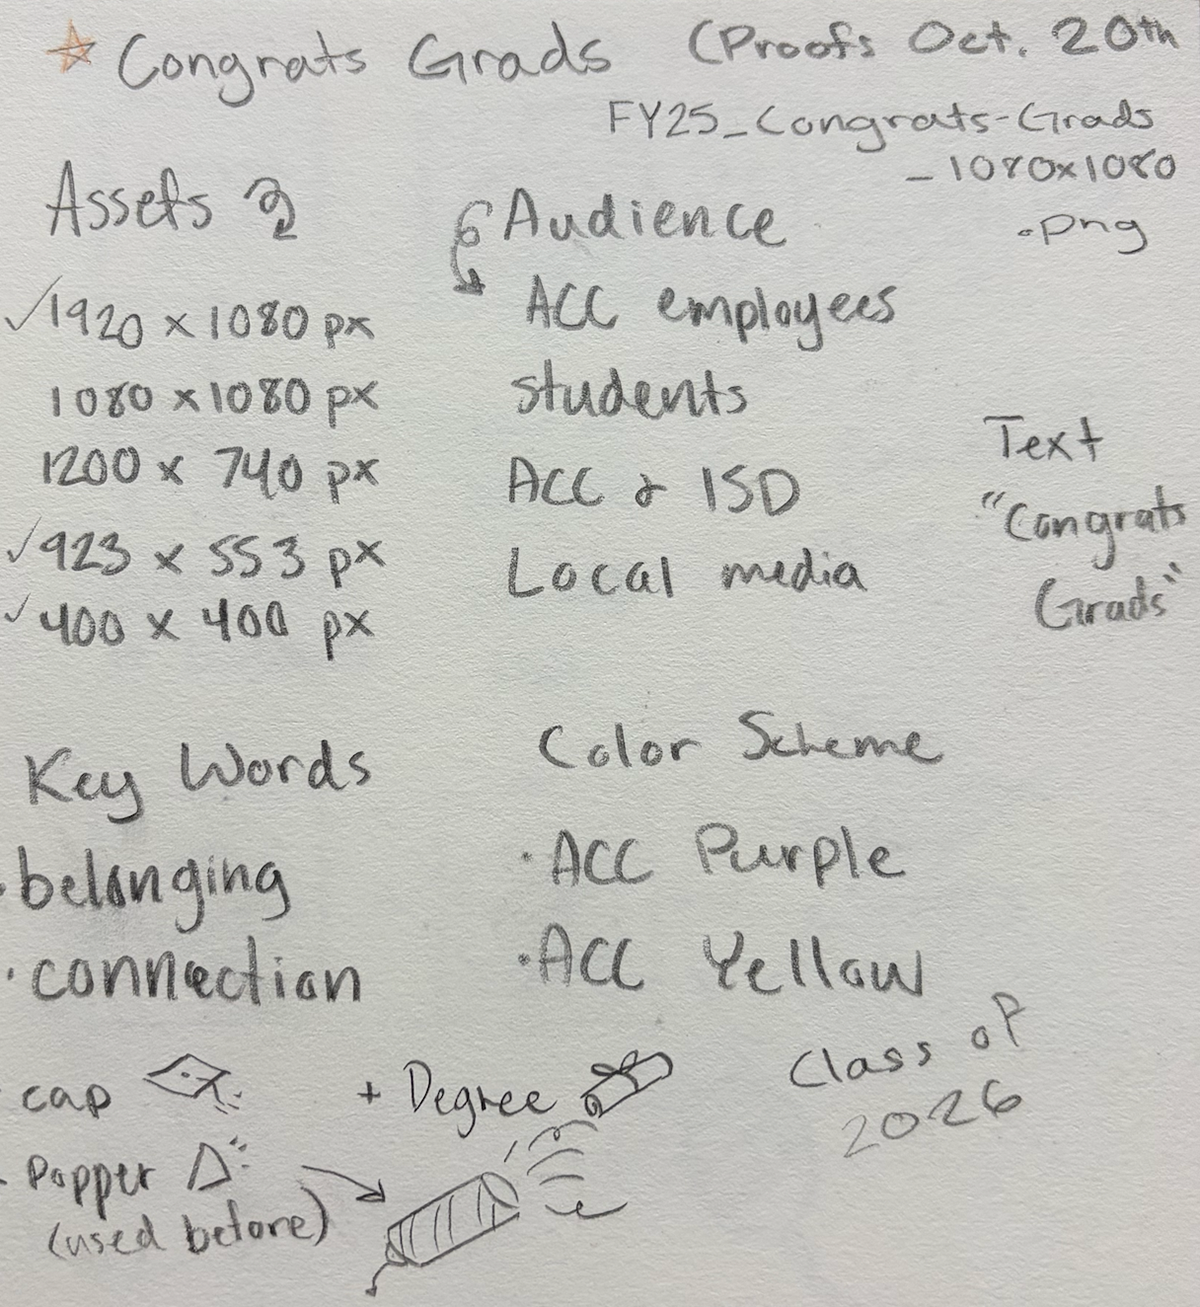 Congrats Grads (Proofs Oct. 20th
FY25_Congrats-Grads
_1080x1080
.png
Assets
✓1920 x 1080 px
1080 x 1080 px
1200 x 740 px
✓923 x 553 px
✓400 x 400 px
Audience
ACC employees
students
ACC & ISD
Local media
Text
"Congrats
Grads"
Key Words
·belonging
·connection
Color Scheme
·ACC Purple
·ACC Yellow
Class of
2026
- cap + Degree
- Popper
(used before)